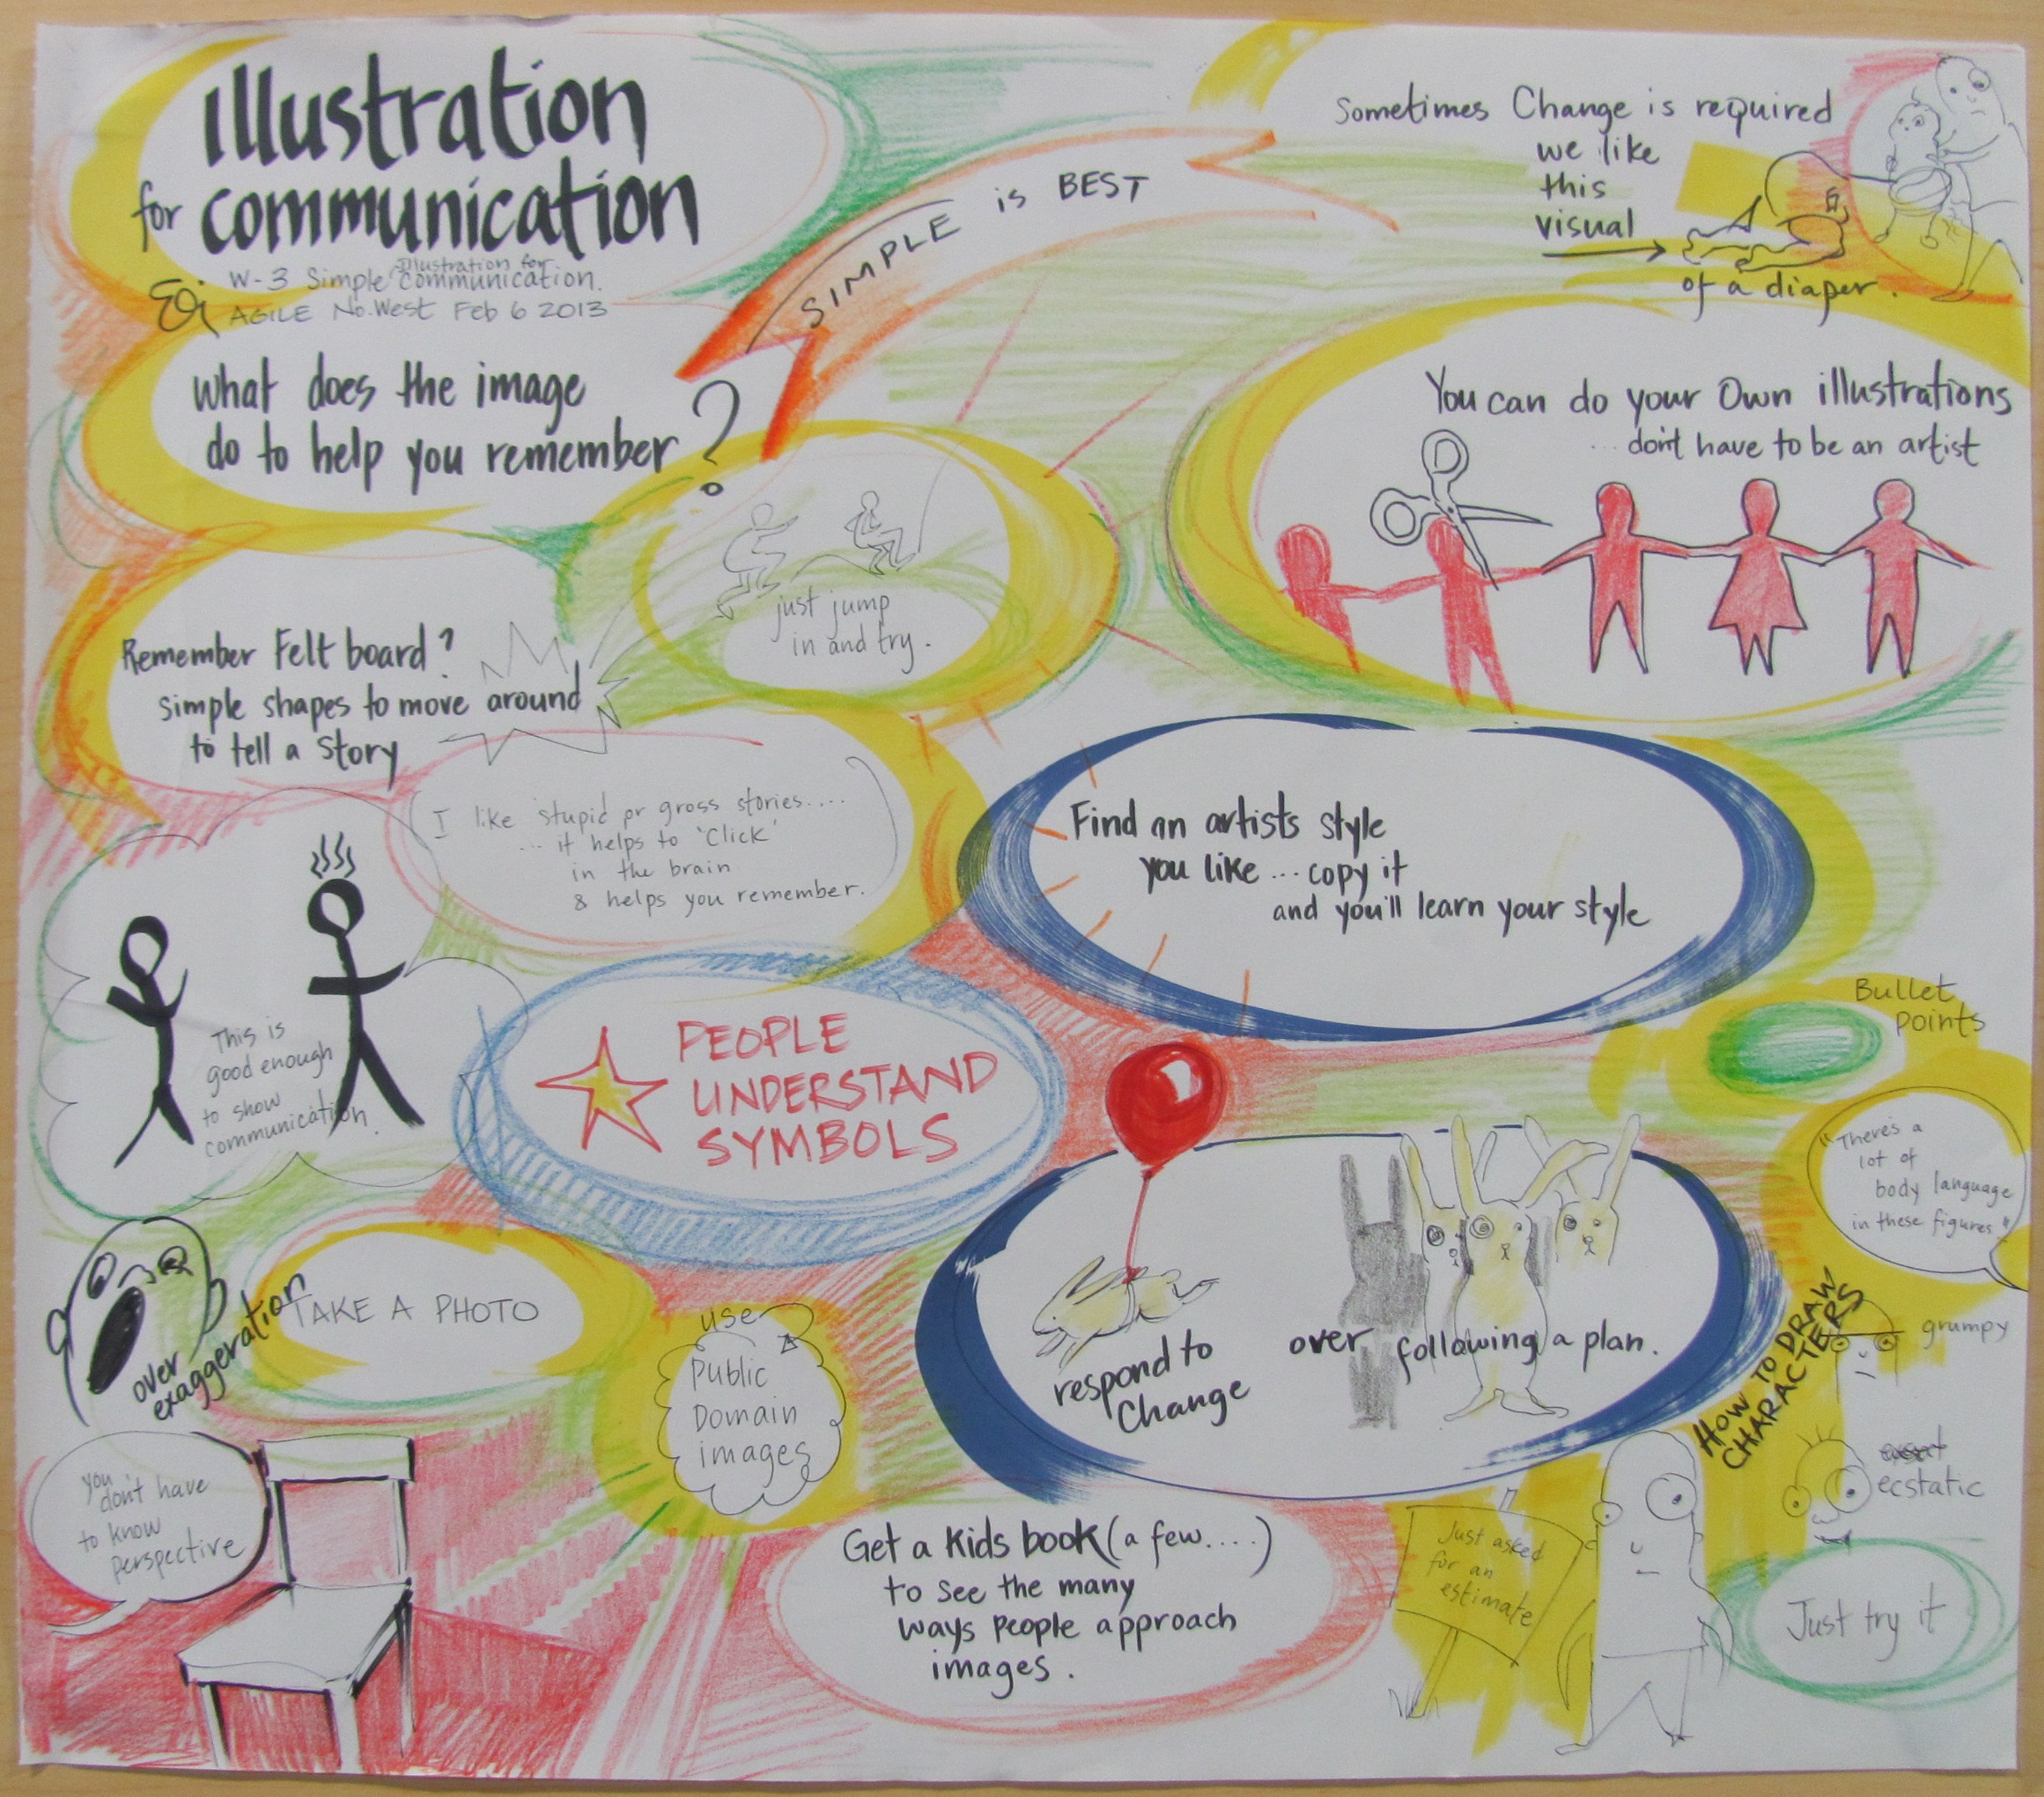 Illustration
for communication
W-3 Simple Illustration for Communication.
AGILE No.West Feb 6 2013
SIMPLE is BEST
Sometimes Change is required
we like
this
visual
of a diaper.
What does the image
do to help you remember?
You can do your Own illustrations
...don't have to be an artist
just jump
in and try.
Remember Felt board?
simple shapes to move around
to tell a Story
I like stupid or gross stories....
... it helps to 'Click'
in the brain
& helps you remember.
Find an artists style
you like ... copy it
and you'll learn your style
This is
good enough
to show
communication.
PEOPLE
UNDERSTAND
SYMBOLS
Bullet
points
"There's a
lot of
body language
in these figures"
respond to
Change
over following a plan.
over
exaggeration
TAKE A PHOTO
use
Public
Domain
images
HOW TO DRAW
CHARACTERS
grumpy
ecstatic
you
don't have
to know
perspective
Get a Kids book (a few....)
to see the many
ways people approach
images.
Just asked
for an
estimate
Just try it